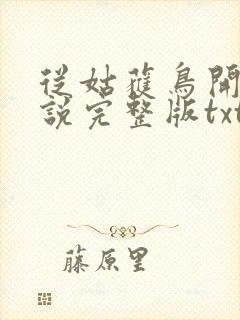 從姑獲鳥開
說完整版txt
藤原里